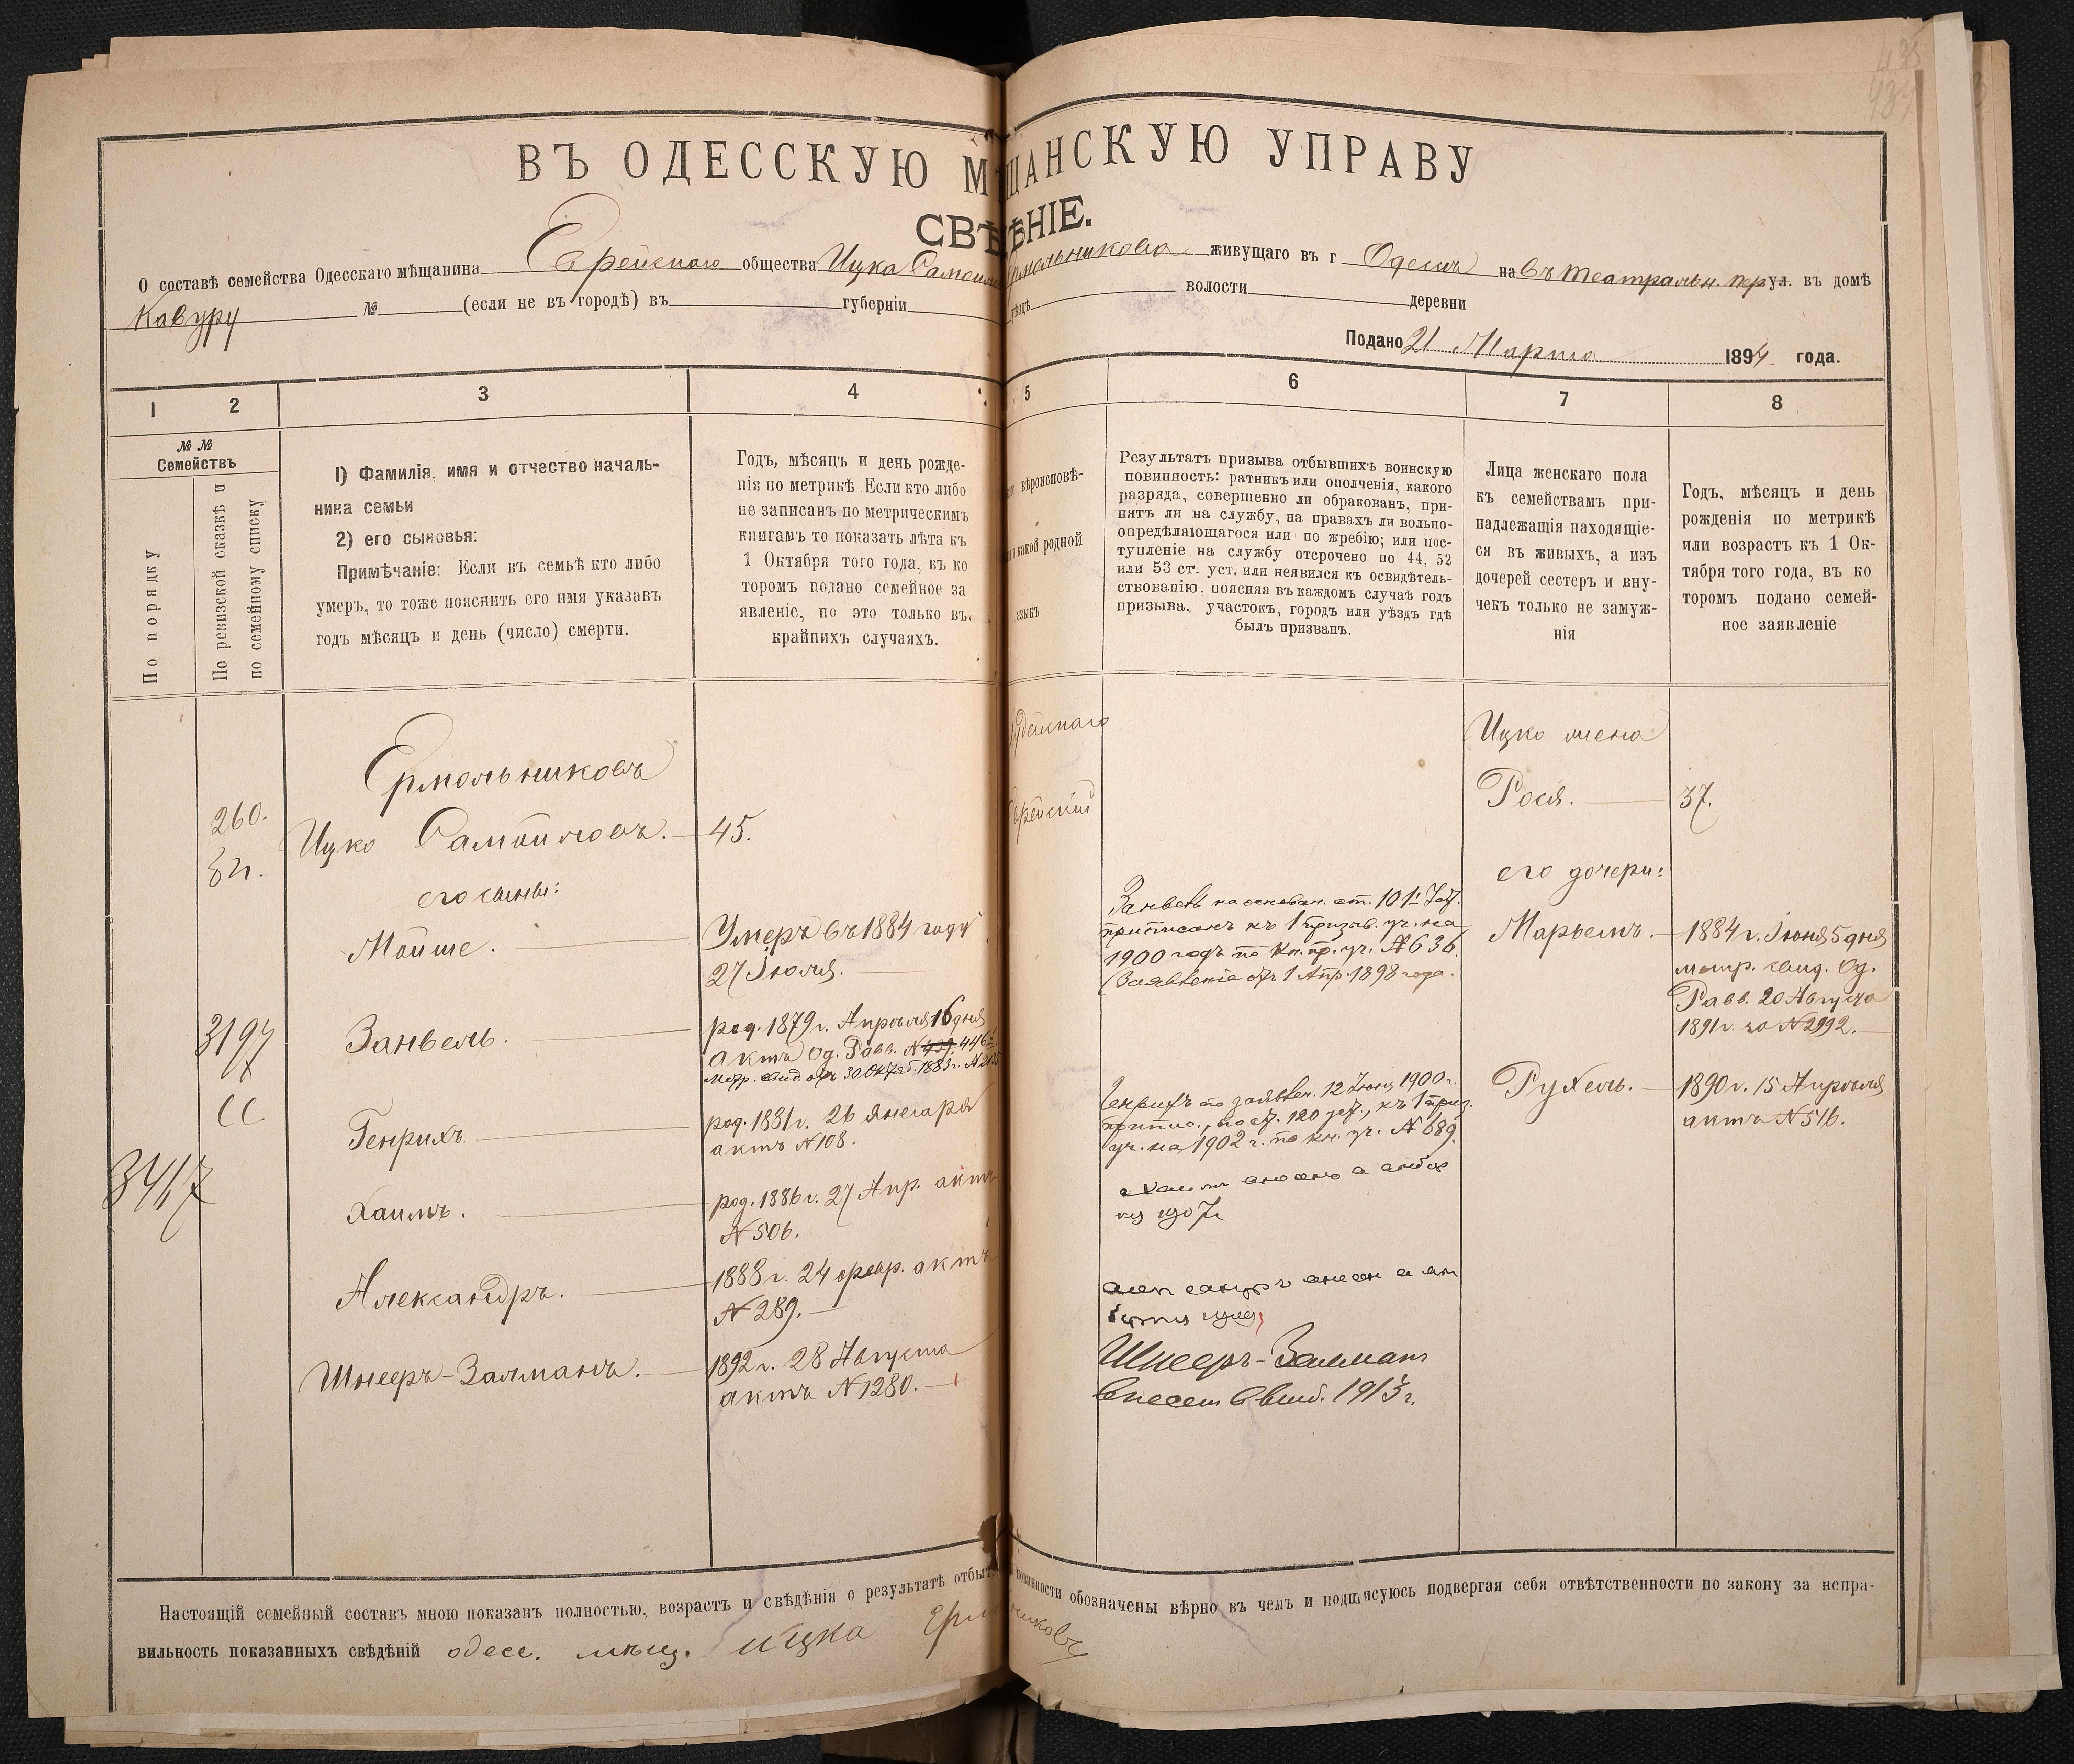 ВЪ ОДЕССКУЮ М ЩАНСКУЮ УПРАВУ
СВѢ ѢНІЕ.
О составѣ семейства Одесскаго мѣщанина Еврейскаго общества Ицка Самойл Ермольникова живущаго въ г Одессѣ на въ театральн. пр ул. въ домѣ
Кавуру № (если не въ городѣ) въ губерніи уѣздѣ волости деревни
Подано 21 Марта 1894 года.
1 2 3 4 5 6 7 8
№ №
Семействъ
По порядку
По ревизской сказкѣ и
по семейному списку
1) Фамилія, имя и отчество началь-
ника семьи
2) его сыновья:
Примѣчаніе: Если въ семьѣ кто либо
умеръ, то тоже пояснить его имя указавъ
годъ мѣсяцъ и день (число) смерти.
Годъ, мѣсяцъ и день рожде-
нія по метрикѣ Если кто либо
не записанъ по метрическимъ
книгамъ то показать лѣта къ
1 Октября того года, въ ко
торомъ подано семейное за
явленіе, но это только въ
крайнихъ случаяхъ.
вѣроисповѣ-
какой родной
языкъ
Результатъ призыва отбывшихъ воинскую
повинность: ратникъ или ополченія, какого
разряда, совершенно ли обракованъ, при-
нятъ ли на службу, на правахъ ли вольно-
опредѣляющагося или по жребію; или пос-
тупленіе на службу отсрочено по 44, 52
или 53 ст. уст. или неявился къ освидѣтель-
ствованію, поясняя въ каждомъ случаѣ годъ
призыва, участокъ, городъ или уѣздъ гдѣ
былъ призванъ.
Лица женскаго пола
къ семействамъ при-
надлежащія находящіе-
ся въ живыхъ, а изъ
дочерей сестеръ и вну-
чекъ только не замуж-
нія
Годъ, мѣсяцъ и день
рожденія по метрикѣ
или возрастъ къ 1 Ок-
тября того года, въ ко
торомъ подано семей-
ное заявленіе
260.
3197
СС
3417
Ермольниковъ
Ицко Самойловъ. 45.
его сыновья:
Мойше. Умеръ въ 1884 году
27 Іюля.
Занвель. род. 1879 г. Апрѣля 16 дня
актъ Од. Равв. № 446
Метр. свид. отъ 30 Октяб. 1883 г.
Генрихъ. род. 1881 г. 26 января
актъ № 108.
Хаимъ. род. 1886 г. 27 Апр. актъ
№ 506.
Александръ. 1888 г. 24 февр. актъ
№ 289.
Шнееръ-Залманъ. 1892 г. 28 Августа
актъ № 1280.
Іудейскаго
Еврейскій
Занвель на основан. ст. 101 Уст.
приписанъ къ 1 призыв. уч. на
1900 годъ по кн. пр. уч. № 636.
(Заявленіе отъ 1 Апр. 1898 года.
Генрихъ по заявлен. 12 Іюня 1900 г.
припис., по ст. 120 уст., къ 1 приз.
уч. на 1902 г. по кн. уч. № 689.
Хаимъ
1907 г
Александръ
Шнееръ-Залманъ
внесен в 1913 г.
Ицко жена
Рося. 37.
его дочери:
Марьемъ. 1884 г. Іюня 5 дня
метр. свид. Од.
Равв. 20 Августа
1891 г. за № 2992.
Рухель. 1890 г. 15 Апрѣля
актъ № 516.
Настоящій семейный составъ мною показанъ полностью, возрастъ и свѣдѣнія о результатѣ отбыт повинности обозначены вѣрно въ чемъ и подписуюсь подвергая себя отвѣтственности по закону за непра-
вильность показанныхъ свѣдѣній одес. мѣщ. ицка Ермольниковъ